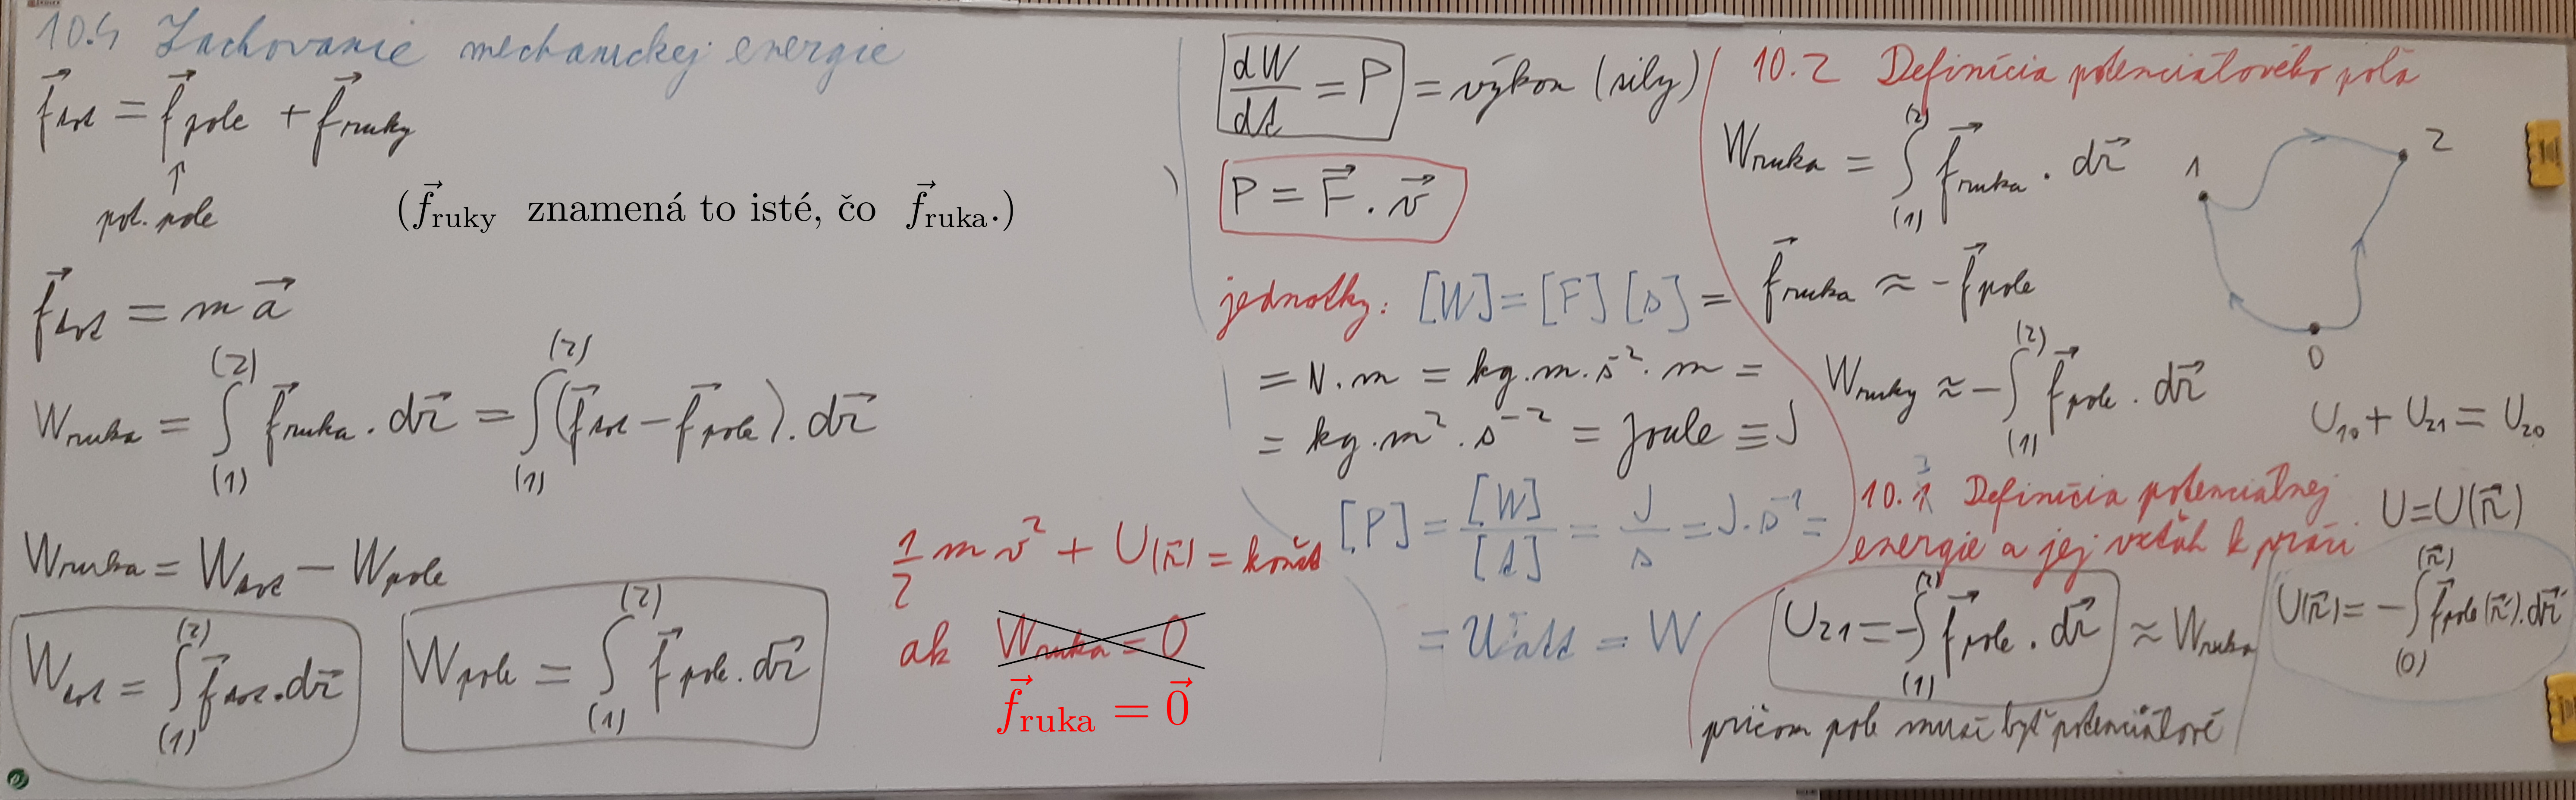 10.4 Zachovanie mechanickej energie
f⃗_tot = f⃗_pole + f⃗_ruky
↑
pot. pole
(f⃗_ruky znamená to isté, čo f⃗_ruka.)
f⃗_tot = m a⃗
W_ruka = ∫_(1)^(2) f⃗_ruka . dr⃗ = ∫_(1)^(2) (f⃗_tot − f⃗_pole) . dr⃗
W_ruka = W_tot − W_pole
W_tot = ∫_(1)^(2) f⃗_tot . dr⃗
W_pole = ∫_(1)^(2) f⃗_pole . dr⃗
1/2 m v² + U(r⃗) = konšt
ak W_ruka = 0
f⃗_ruka = 0⃗
dW/dt = P = výkon (sily)
P = F⃗ . v⃗
jednotky: [W] = [F] [s] =
= N . m = kg . m . s⁻² . m =
= kg . m² . s⁻² = joule ≡ J
[P] = [W]/[t] = J/s = J . s⁻¹ =
= Watt = W
10.2 Definícia potenciálového poľa
W_ruka = ∫_(1)^(2) f⃗_ruka . dr⃗
1
2
0
f⃗_ruka ≈ − f⃗_pole
W_ruky ≈ − ∫_(1)^(2) f⃗_pole . dr⃗
U₁₀ + U₂₁ = U₂₀
10.3 Definícia potenciálnej
energie a jej vzťah k práci
U = U(r⃗)
U₂₁ = − ∫_(1)^(2) f⃗_pole . dr⃗ ≈ W_ruka
U(r⃗) = − ∫_(0)^(r⃗) f⃗_pole(r⃗) . dr⃗
pričom pole musí byť potenciálové